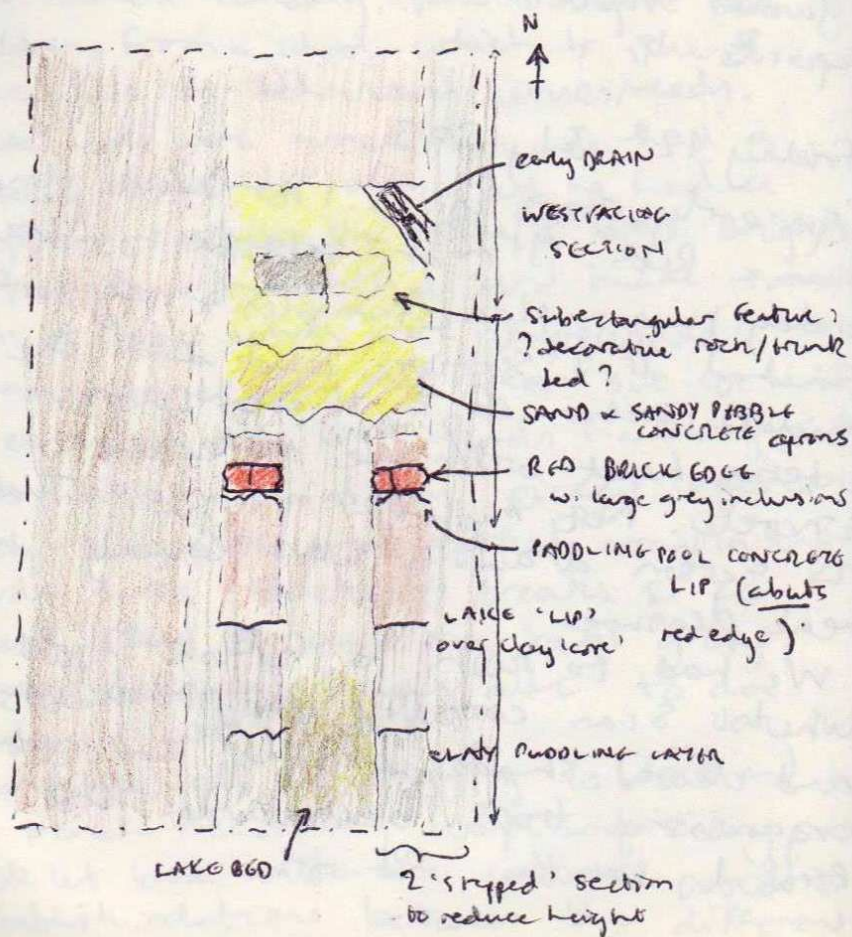 N
early DRAIN
WEST FACING
SECTION
Subrectangular feature:
? decorative rock/trunk
bed ?
SAND & SANDY PEBBLE
CONCRETE aprons
RED BRICK EDGE
w. large grey inclusions
PADDLING POOL CONCRETE
LIP (abuts
red edge)
LAKE 'LIP'
over clay 'core'
CLAY PUDDLING LAYER
LAKE BED
2 'stepped' section
to reduce height